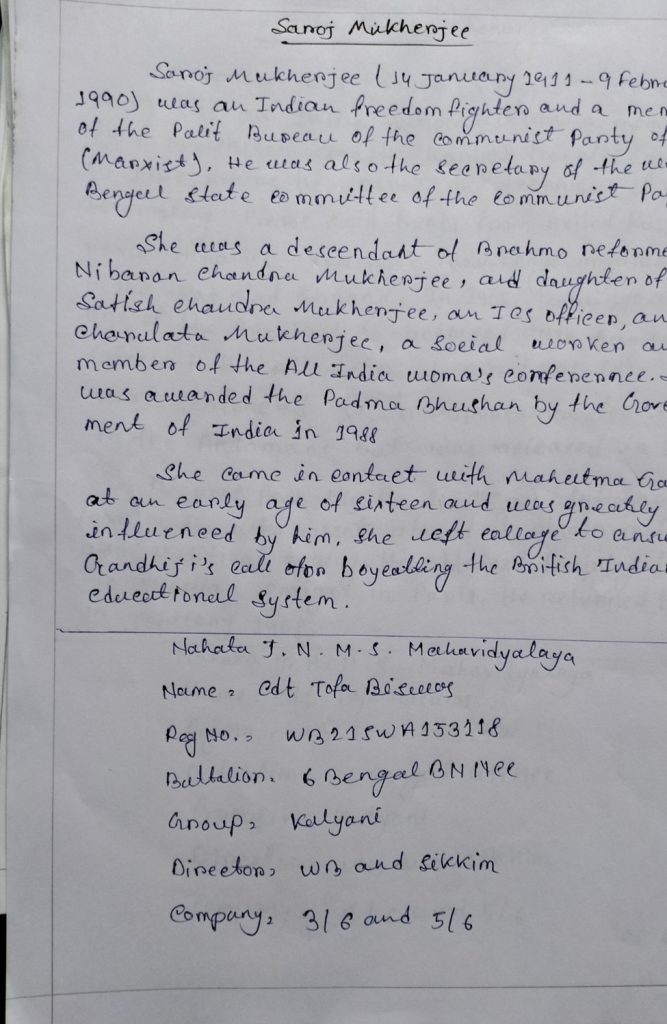 Saroj Mukherjee
Saroj Mukherjee (14 January 1911 - 9 Febru
1990) was an Indian freedom fighters and a mem
of the Polit Bureau of the communist Party of
(Marxist). He was also the secretary of the we
Bengal state committee of the communist Pa
She was a descendant of Brahmo reforme
Nibaran chandra Mukherjee, and daughter of
Satish chandra Mukherjee, an Ics officer, an
charulata Mukherjee, a social worker an
member of the All India woma's conferennce.
was awarded the Padma Bhushan by the Gove
ment of India in 1988
She came in contact with Mahatma Ga
at an early age of sixteen and was greatly
influenced by him. she left collage to answ
Gandhiji's call for boycotting the British India
educational system.
Nahata J. N. M. S. Mahavidyalaya
Name = Cdt Tofa Biswas
Reg No. = WB21SWA153118
Battalion = 6 Bengal BN NCC
Group = Kalyani
Director = WB and Sikkim
Company = 3/6 and 5/6